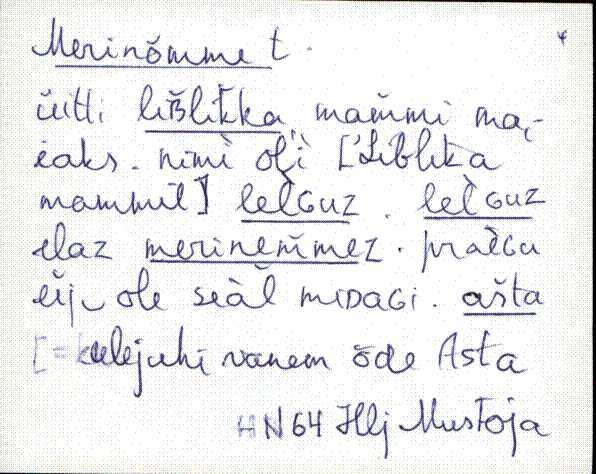 Merinõmme t. 4
üitti liβlikka mammi ma,-
jaks. nimi ol'i [Liblika
mammil] lelGuz. lelGuz
elaz merinemmez. praeGu
eij ole seal miDaGi. ašta
[= kulejuhi vanem õde Asta
HN 64 Hlj Mustoja